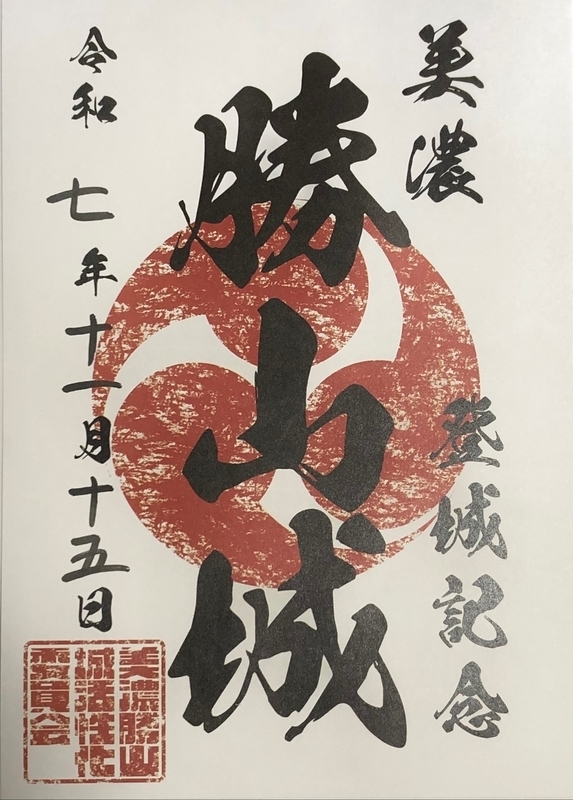 美濃
登城記念
勝山城
令和七年十一月十五日
美濃勝山
城活性化
委員会